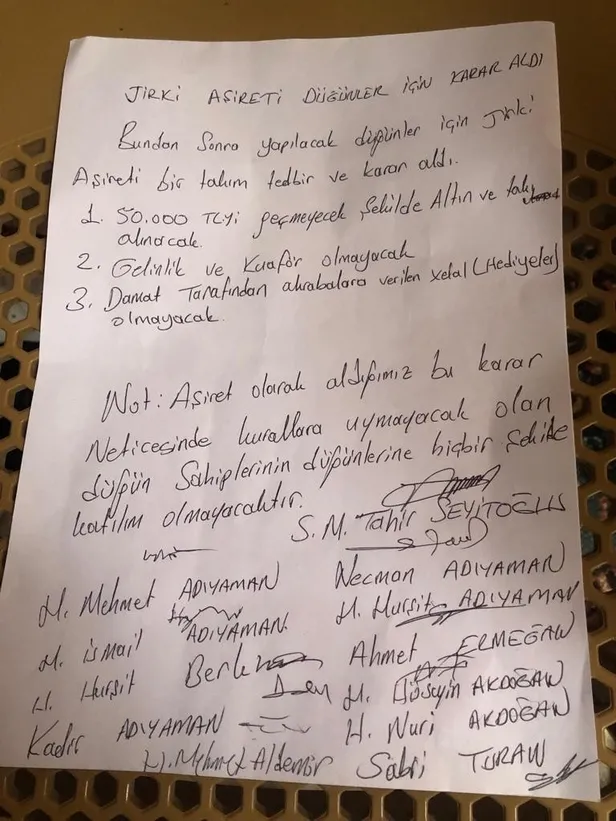 JİRKİ AŞİRETİ DÜĞÜNLER İÇİN KARAR ALDI
Bundan Sonra yapılacak düğünler için Jirki
Aşireti bir takım tedbir ve karar aldı.
1. 50.000 TLyi geçmeyecek Şekilde Altın ve takı
alınacak.
2. Gelinlik ve Kuaför olmayacak
3. Damat Tarafından akrabalara verilen xelat (Hediyeler)
olmayacak.
Not: Aşiret olarak aldığımız bu karar
Neticesinde kurallara uymayacak olan
düğün Sahiplerinin düğünlerine hiçbir Şekilde
katılım olmayacaktır.
S. M. Tahir SEYİTOĞLU
H. Mehmet ADIYAMAN
Necman ADIYAMAN
H. İsmail ADIYAMAN.
H. Hurşit ADIYAMAN
H. Hurşit
Ahmet ERMEĞAN
H. Hüseyin AKDOĞAN
Kadir ADIYAMAN
H. Nuri AKDOĞAN
H. Mehmet Aldemir
Sabri TURAN